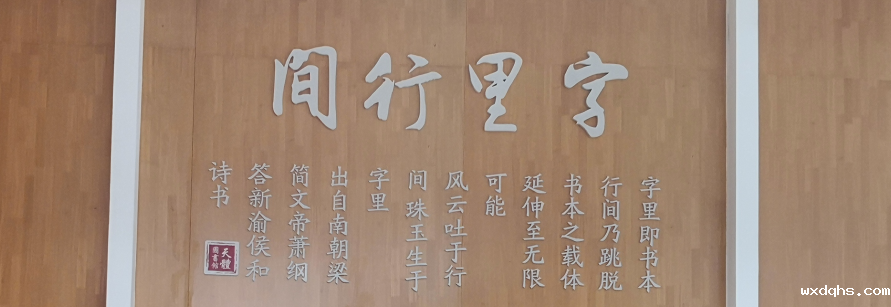 字里行間
字里即书本
行间乃跳脱
书本之载体
延伸至无限
可能
风云吐于行
间珠玉生于
字里
出自南朝梁
简文帝萧纲
答新渝侯和
诗书
天體
圖書館
wxdqhs.com